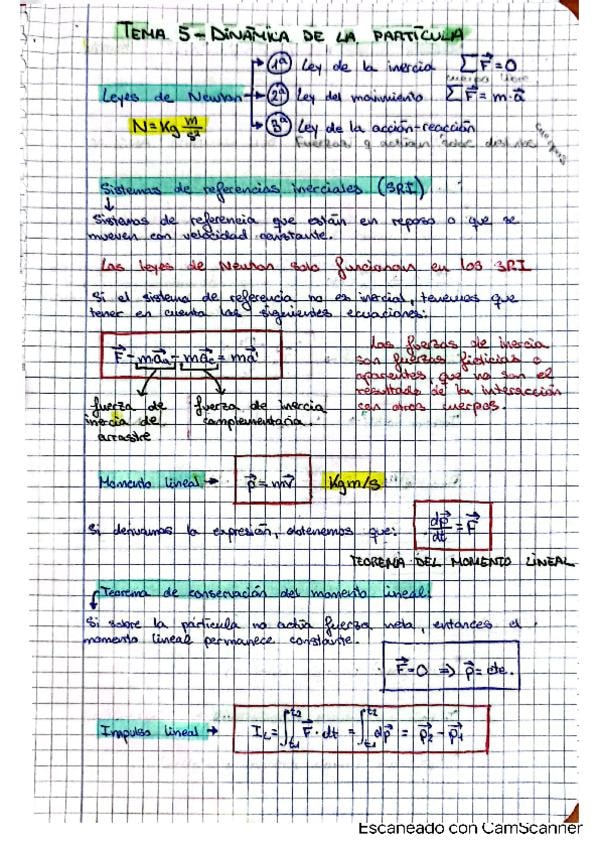 TEMA 5 - DINÁMICA DE LA PARTÍCULA
Leyes de Newton
1ª Ley de la inercia ΣF⃗ = 0
cuerpo libre
2ª Ley del movimiento ΣF⃗ = m·a⃗
3ª Ley de la acción-reacción
N = Kg m/s²
Sistemas de referencias inerciales (SRI)
Sistemas de referencia que están en reposo o que se
mueven con velocidad constante.
Las leyes de Newton solo funcionan en los SRI
Si el sistema de referencia no es inercial, tenemos que
tener en cuenta las siguientes ecuaciones:
F⃗ - ma⃗a - ma⃗c = ma⃗'
fuerza de
inercia de
arrastre
fuerza de inercia
complementaria.
Las fuerzas de inercia
son fuerzas ficticias o
aparentes, que no son el
resultado de la interacción
con otros cuerpos.
Momento lineal → p⃗ = mv⃗ Kgm/s
Si derivamos la expresión, obtenemos que: dp⃗/dt = F⃗
TEOREMA DEL MOMENTO LINEAL
Teorema de conservación del momento lineal:
Si sobre la partícula no actúa fuerza neta, entonces el
momento lineal permanece constante.
F⃗ = 0 ⇒ p⃗ = cte.
Impulso lineal → I_L = ∫t1 t2 F⃗ · dt = ∫t1 t2 dp⃗ = p⃗2 - p⃗1
Escaneado con CamScanner